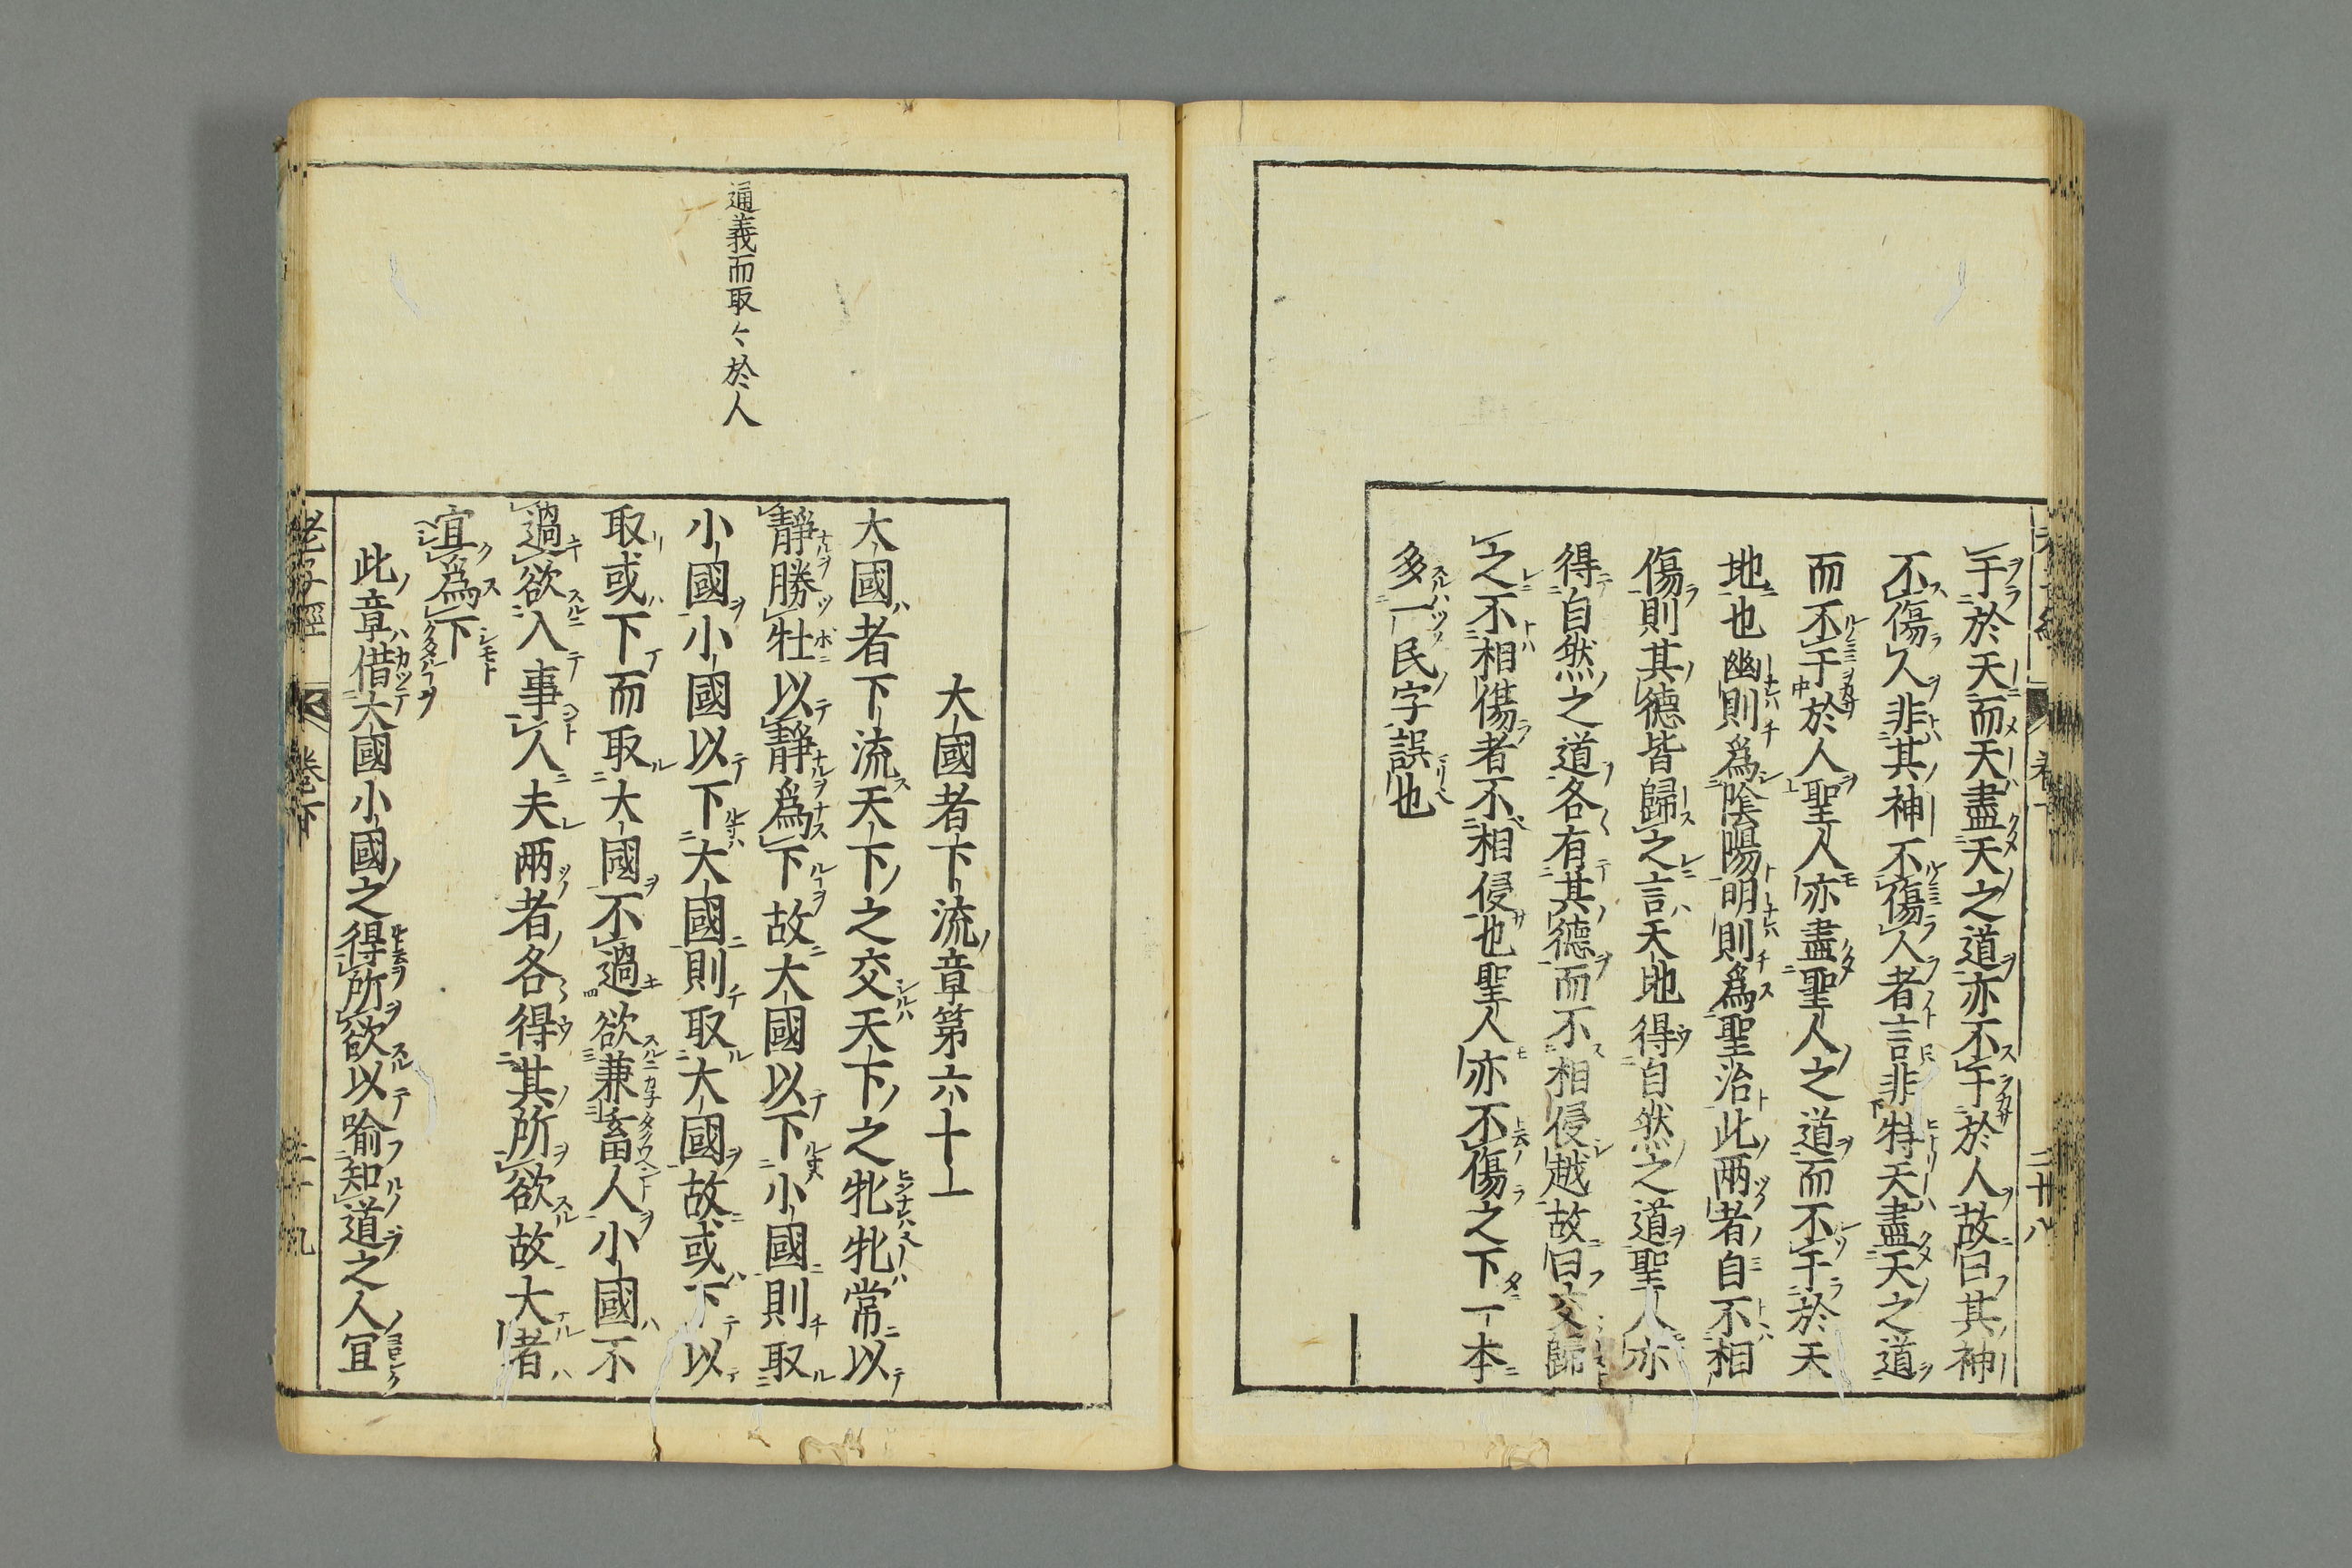 于於天而天盡天之道亦不于於人故曰其神
不傷人非其神不傷人者言非特天盡天之道
而不于於人聖人亦盡聖人之道而不于於天
地也幽則爲陰陽明則爲聖治此兩者自不相
傷則其德皆歸之言天地得自然之道聖人亦
得自然之道各有其德而不相侵越故曰交歸
之不相傷者不相侵也聖人亦不傷之下一本
多一民字誤也
通義而取々於人
大國者下流章第六十一
大國者下流天下之交天下之牝牝常以
靜勝牡以靜爲下故大國以下小國則取
小國小國以下大國則取大國故或下以
取或下而取大國不過欲兼畜人小國不
過欲入事人夫兩者各得其所欲故大者
宜爲下
此章借大國小國之得所欲以喻知道之人宜
老子經 卷下 二十九